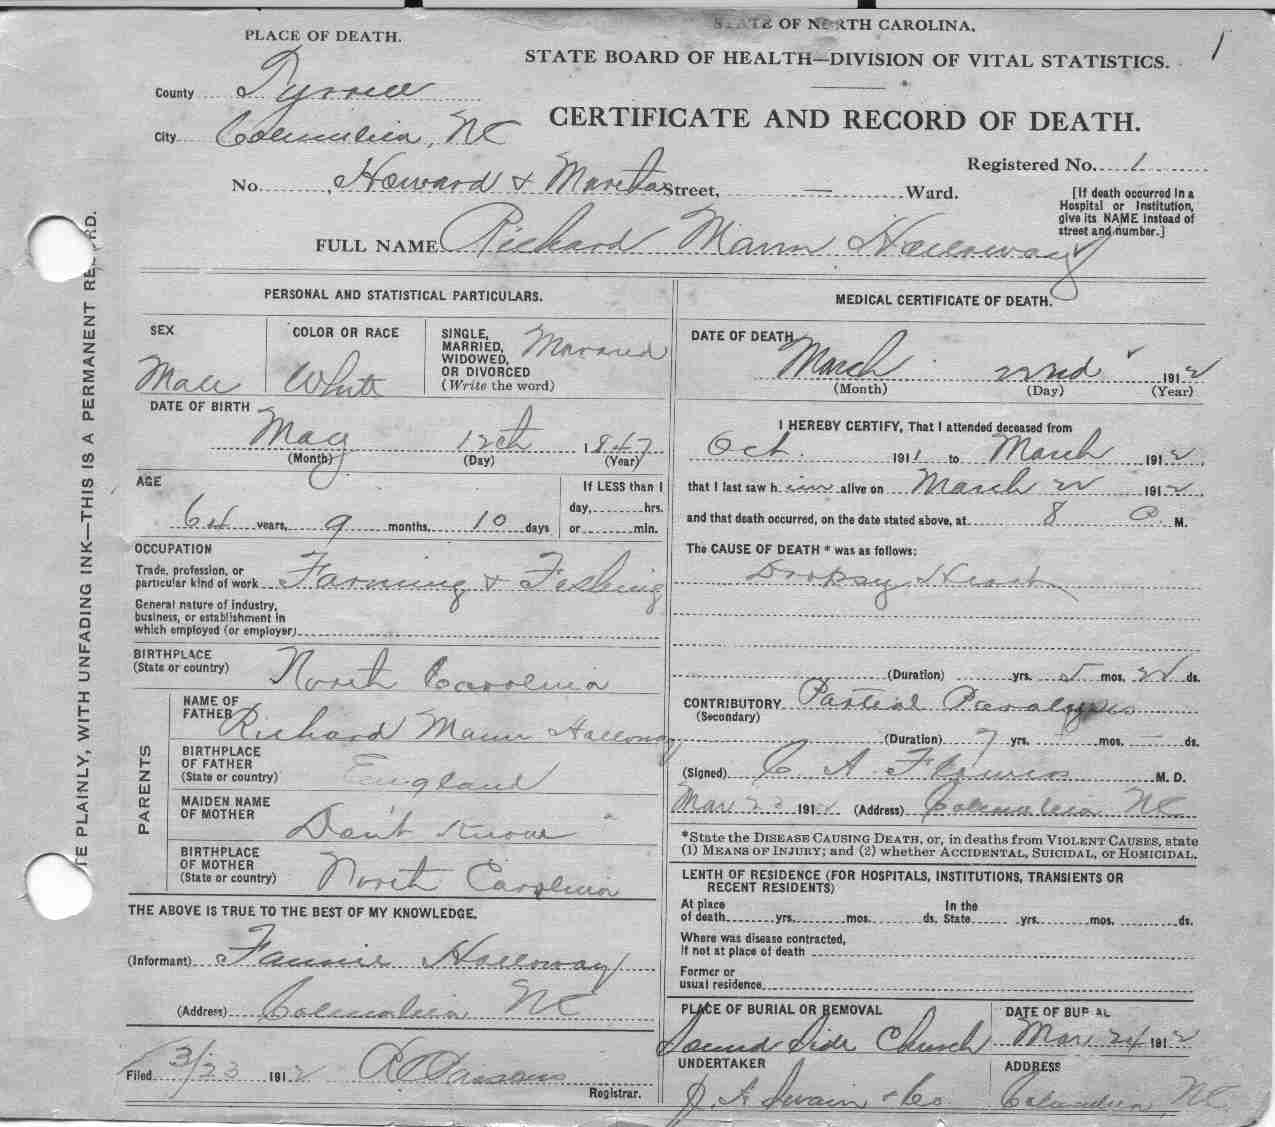 STATE OF NORTH CAROLINA.
STATE BOARD OF HEALTH—DIVISION OF VITAL STATISTICS.
1
CERTIFICATE AND RECORD OF DEATH.
PLACE OF DEATH.
County Tyrrell
City Columbia, NC
Registered No. 1
No. , Howard & Martha Street, — Ward.
[If death occurred in a
Hospital or Institution,
give its NAME instead of
street and number.]
FULL NAME Richard Mann Holloway
WRITE PLAINLY, WITH UNFADING INK—THIS IS A PERMANENT RECORD.
PERSONAL AND STATISTICAL PARTICULARS.
SEX
Male
COLOR OR RACE
White
SINGLE,
MARRIED,
WIDOWED,
OR DIVORCED
(Write the word)
Married
DATE OF BIRTH
May 12th 1847
(Month) (Day) (Year)
AGE
64 years, 9 months, 10 days
If LESS than 1
day, hrs.
or min.
OCCUPATION
Trade, profession, or
particular kind of work Farming & Fishing
General nature of industry,
business, or establishment in
which employed (or employer)
BIRTHPLACE
(State or country) North Carolina
PARENTS
NAME OF
FATHER Richard Mann Holloway
BIRTHPLACE
OF FATHER
(State or country) England
MAIDEN NAME
OF MOTHER Don't Know
BIRTHPLACE
OF MOTHER
(State or country) North Carolina
THE ABOVE IS TRUE TO THE BEST OF MY KNOWLEDGE.
(Informant) Fannie Holloway
(Address) Columbia NC
Filed 3/23 1912
Registrar.
MEDICAL CERTIFICATE OF DEATH.
DATE OF DEATH
March 22nd 1912
(Month) (Day) (Year)
I HEREBY CERTIFY, That I attended deceased from
Oct. 1911 to March 1912,
that I last saw him alive on March 22 1912
and that death occurred, on the date stated above, at 8 M.
The CAUSE OF DEATH * was as follows:
Dropsy Heart
(Duration) yrs. 5 mos. 22 ds.
CONTRIBUTORY Partial Paralysis
(Secondary)
(Duration) 7 yrs. — mos. — ds.
(Signed) C A Flowers M. D.
Mar 22 1912 (Address) Columbia NC
*State the DISEASE CAUSING DEATH, or, in deaths from VIOLENT CAUSES, state
(1) MEANS OF INJURY; and (2) whether ACCIDENTAL, SUICIDAL, or HOMICIDAL.
LENTH OF RESIDENCE (FOR HOSPITALS, INSTITUTIONS, TRANSIENTS OR
RECENT RESIDENTS)
At place
of death yrs. mos. ds.
In the
State yrs. mos. ds.
Where was disease contracted,
if not at place of death
Former or
usual residence
PLACE OF BURIAL OR REMOVAL
Sound Side Church
DATE OF BURIAL
Mar 24 1912
UNDERTAKER
J. A Swain & Co
ADDRESS
Columbia, NC